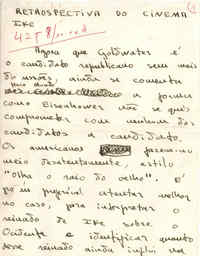 RETROSPECTIVA DO CINEMA
IKE
Agora que Goldwater é
o candidato republicano sem mais
do mundo, ainda se comenta
a forma
como Eisenhower não se quis
comprometer com nenhum dos
candidatos a candidato.
Os americanos fazem-no
meio desatentamente, estilo
"olha o raio do velho". É
atentar melhor
no caso, para interpretar o
reinado de IKE sobre o
Ocidente e identificar quanto
esse reinado ainda